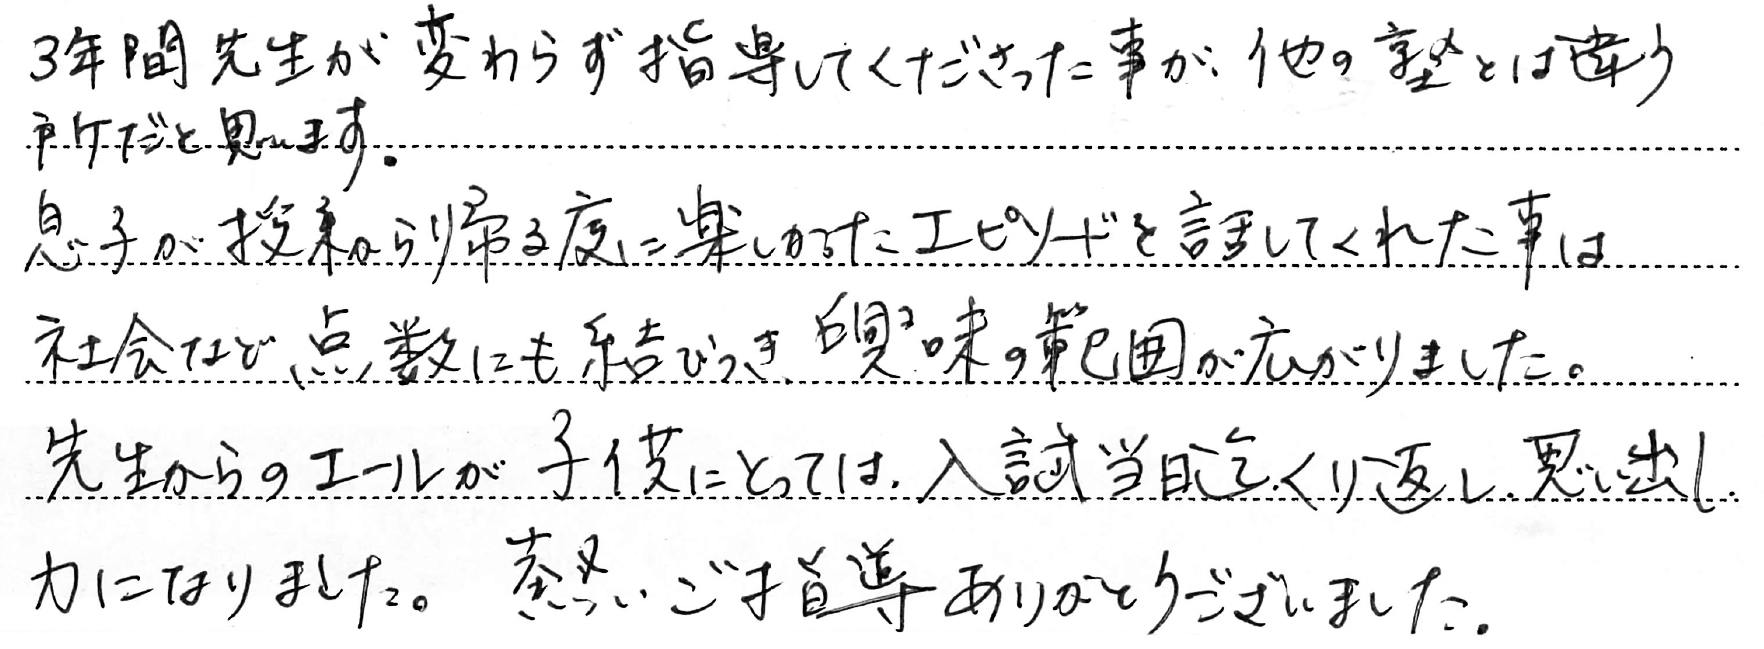 3年間先生が変わらず指導してくださった事が、他の塾とは違う
所だと思います。
息子が授業から帰る度に楽しかったエピソードを話してくれた事は
社会など点数にも結びつき興味の範囲が広がりました。
先生からのエールが子供にとっては、入試当日迄くり返し思い出し
力になりました。熱いご指導ありがとうございました。